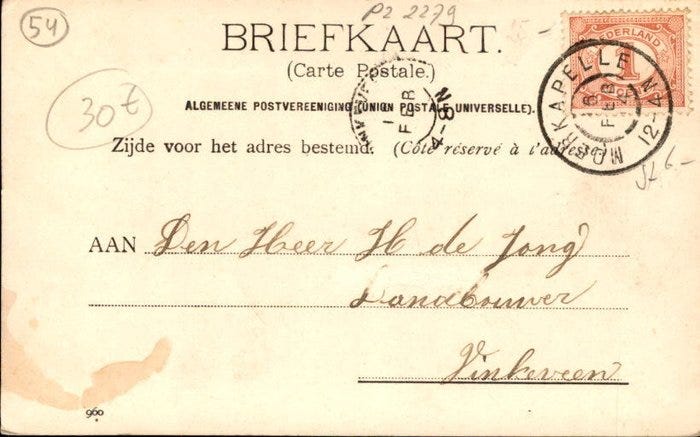 54
PZ 2279
BRIEFKAART.
(Carte Postale.)
30
ALGEMEENE POSTVEREENIGING (UNION POSTALE UNIVERSELLE).
Zijde voor het adres bestemd. (Côté réservé à l'adresse.)
NEDERLAND
1
CENT
MOERKAPELLE
8
FEB
12-4N
1
FEB
4-8N
AAN Den Heer H de Jong
Landbouwer
Vinkeveen
960